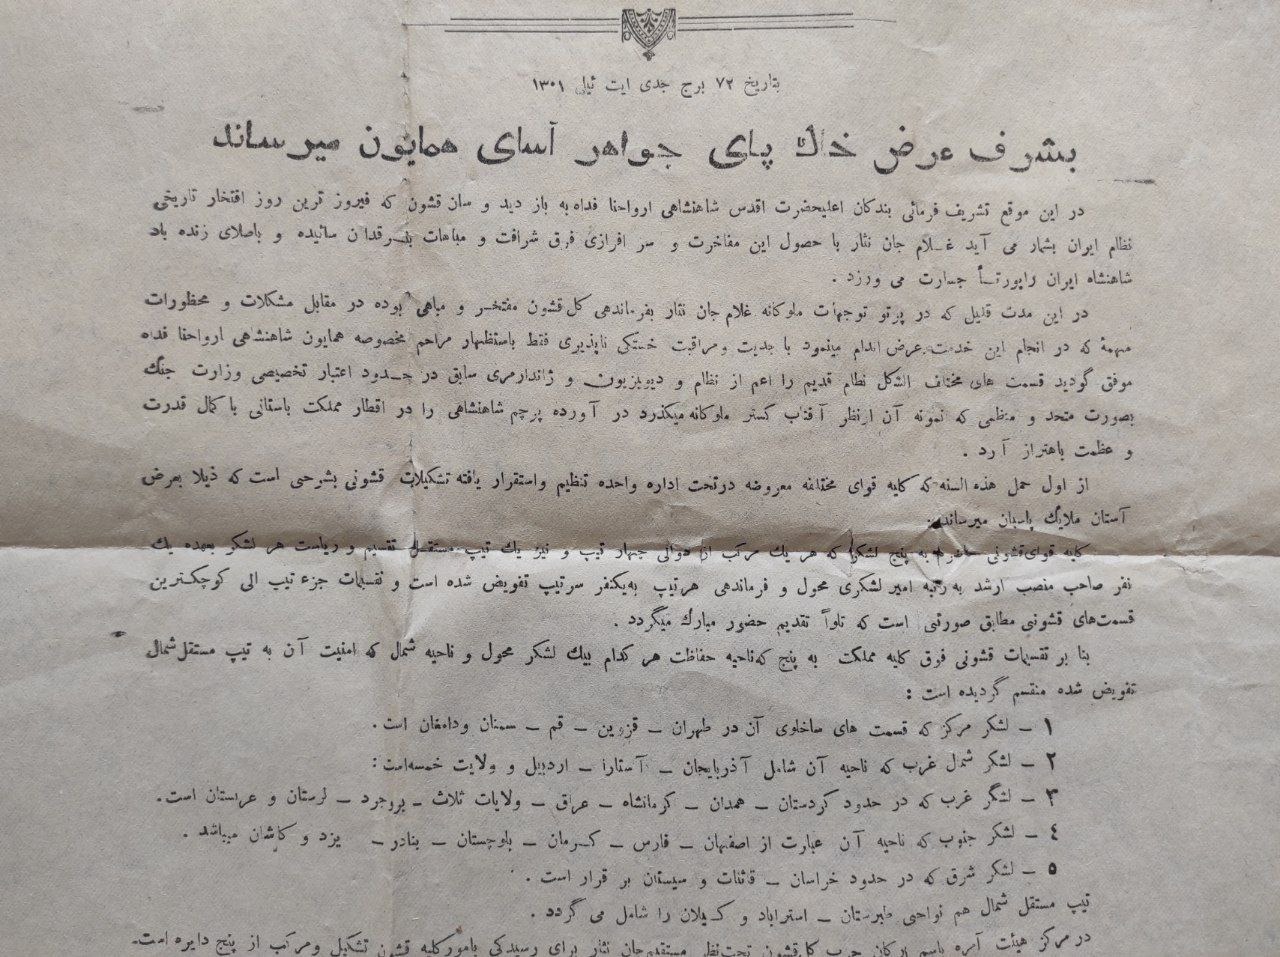 بتاریخ ۷۲ برج جدی ایت ئیلی ۱۳۰۱
بشرف عرض خاك پای جواهر آسای همایون میرساند
در این موقع تشریف فرمائی بندكان اعلیحضرت اقدس شاهنشاهی ارواحنا فداه به باز دید و سان قشون كه فیروز ترین روز افتخار تاریخی
نظام ایران بشمار می آید غلام جان نثار با حصول این مفاخرت و سر افرازی فرق شرافت و مباهات بفرقدان سائیده و باصلای زنده باد
شاهنشاه ایران راپورتاً جسارت می ورزد .
در این مدت قلیل كه در پرتو توجهات ملوكانه غلام جان نثار بفرماندهی كل قشون مفتخر و مباهی بوده در مقابل مشكلات و محظورات
مهمهٔ كه در انجام این خدمت عرض اندام مینمود با جدیت ومراقبت خستكی ناپذیری فقط باستظهار مراحم مخصوصه همایون شاهنشاهی ارواحنا فداه
موفق گردید قسمت های مختلف الشكل نظام قدیم را اعم از نظام و دیویزیون و ژاندارمری سابق در حدود اعتبار تخصیصی وزارت جنگ
بصورت متحد و منظمی كه نمونه آن ازنظر آفتاب كستر ملوكانه میكذرد در آورده پرچم شاهنشاهی را در اقطار مملكت باستانی با كمال قدرت
و عظمت باهتراز آرد .
از اول حمل هذه السنه كه كلیه قوای مختلفه معروضه درتحت اداره واحده تنظیم واستقرار یافته تشكیلات قشونی بشرحی است كه ذیلا بعرض
آستان ملایك پاسبان میرساند.
كلیه قوای قشونی به پنج لشكر كه هر یك مركب از حوالی چهار تیپ و نیز یك تیپ مستقل تقسیم و ریاست هر لشكر بعهده یك
نفر صاحب منصب ارشد به رتبه امیر لشكری محول و فرماندهی هرتیپ به یكنفر سرتیپ تفویض شده است و تقسیمات جزء تیپ الی كوچكترین
قسمت‌های قشونی مطابق صورتی است كه تلواً تقدیم حضور مبارك میگردد .
بنا بر تقسیمات قشونی فوق كلیه مملكت به پنج كه ناحیه حفاظت هر كدام بیك لشكر محول و ناحیه شمال كه امنیت آن به تیپ مستقل شمال
تفویض شده منقسم گردیده است :
۱ – لشكر مركز كه قسمت های ساخلوی آن در طهران – قزوین – قم – سمنان ودامغان است .
۲ – لشكر شمل غرب كه ناحیه آن شامل آذربایجان – آستارا – اردبیل و ولایت خمسه است :
۳ – لشگر غرب كه در حدود كردستان – همدان – كرمانشاه – عراق – ولایات ثلاث – بروجرد – لرستان و عربستان است .
٤ – لشكر جنوب كه ناحیه آن عبارت از اصفهان – فارس – كرمان – بلوچستان – بنادر – یزد و كاشان میباشد .
۵ – لشكر شرق كه در حدود خراسان – قائنات و سیستان بر قرار است .
تیپ مستقل شمال هم نواحی طبرستان – استراباد و كیلان را شامل می گردد .
در مركز هیئت آمره باسم اركان حرب كل قشون تحت نظر مستقیم جان نثار برای رسیدكی بامور كلیه قشون تشكیل ومركب از پنج دایره است.